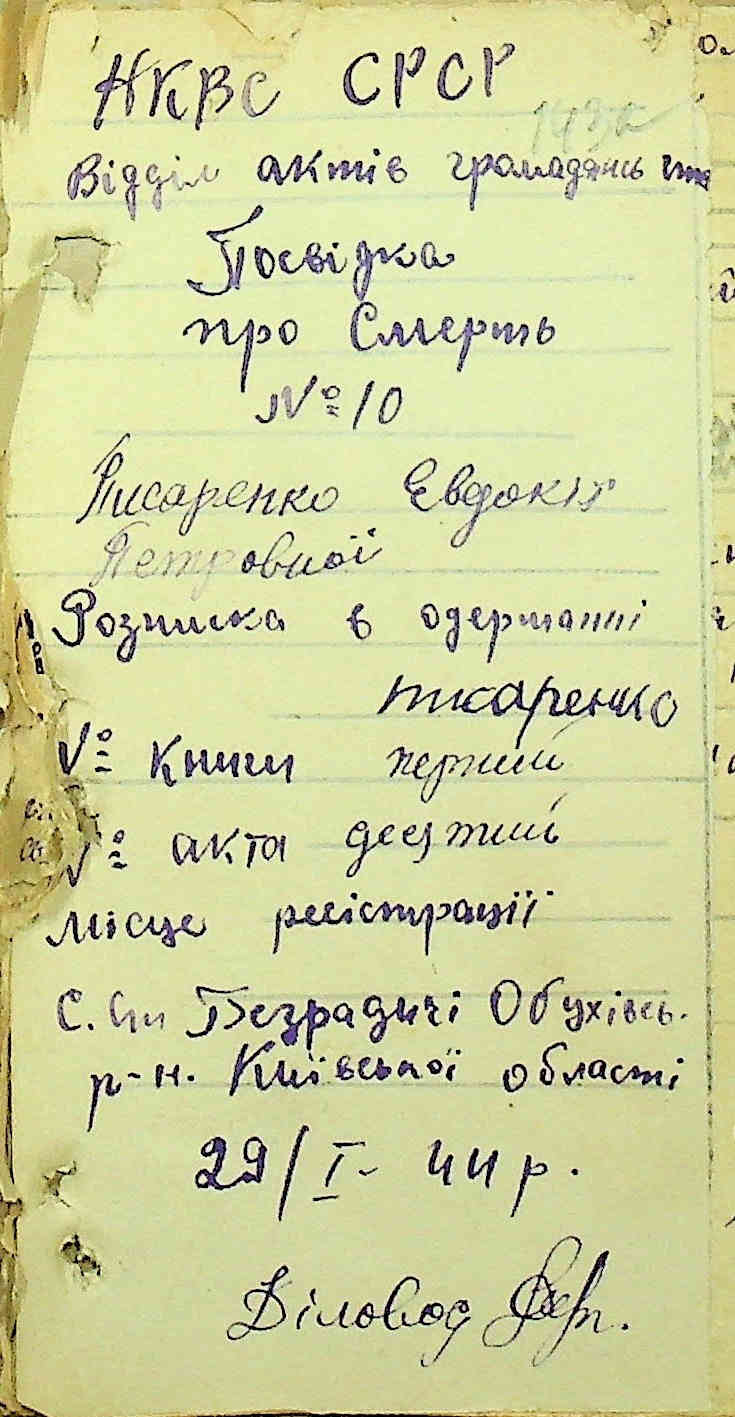 НКВС СРСР
Відділ актів громадянсь
Посвідка
про Смерть
№ 10
Писаренко Евдокія
Петровної
Розписка в одержанні
писаренко
№ Книги перший
№ акта десятий
Місце реєстрації
С. Безрадичі Обухівсь.
р-н. Київської області
29/I- 44 р.
Діловод